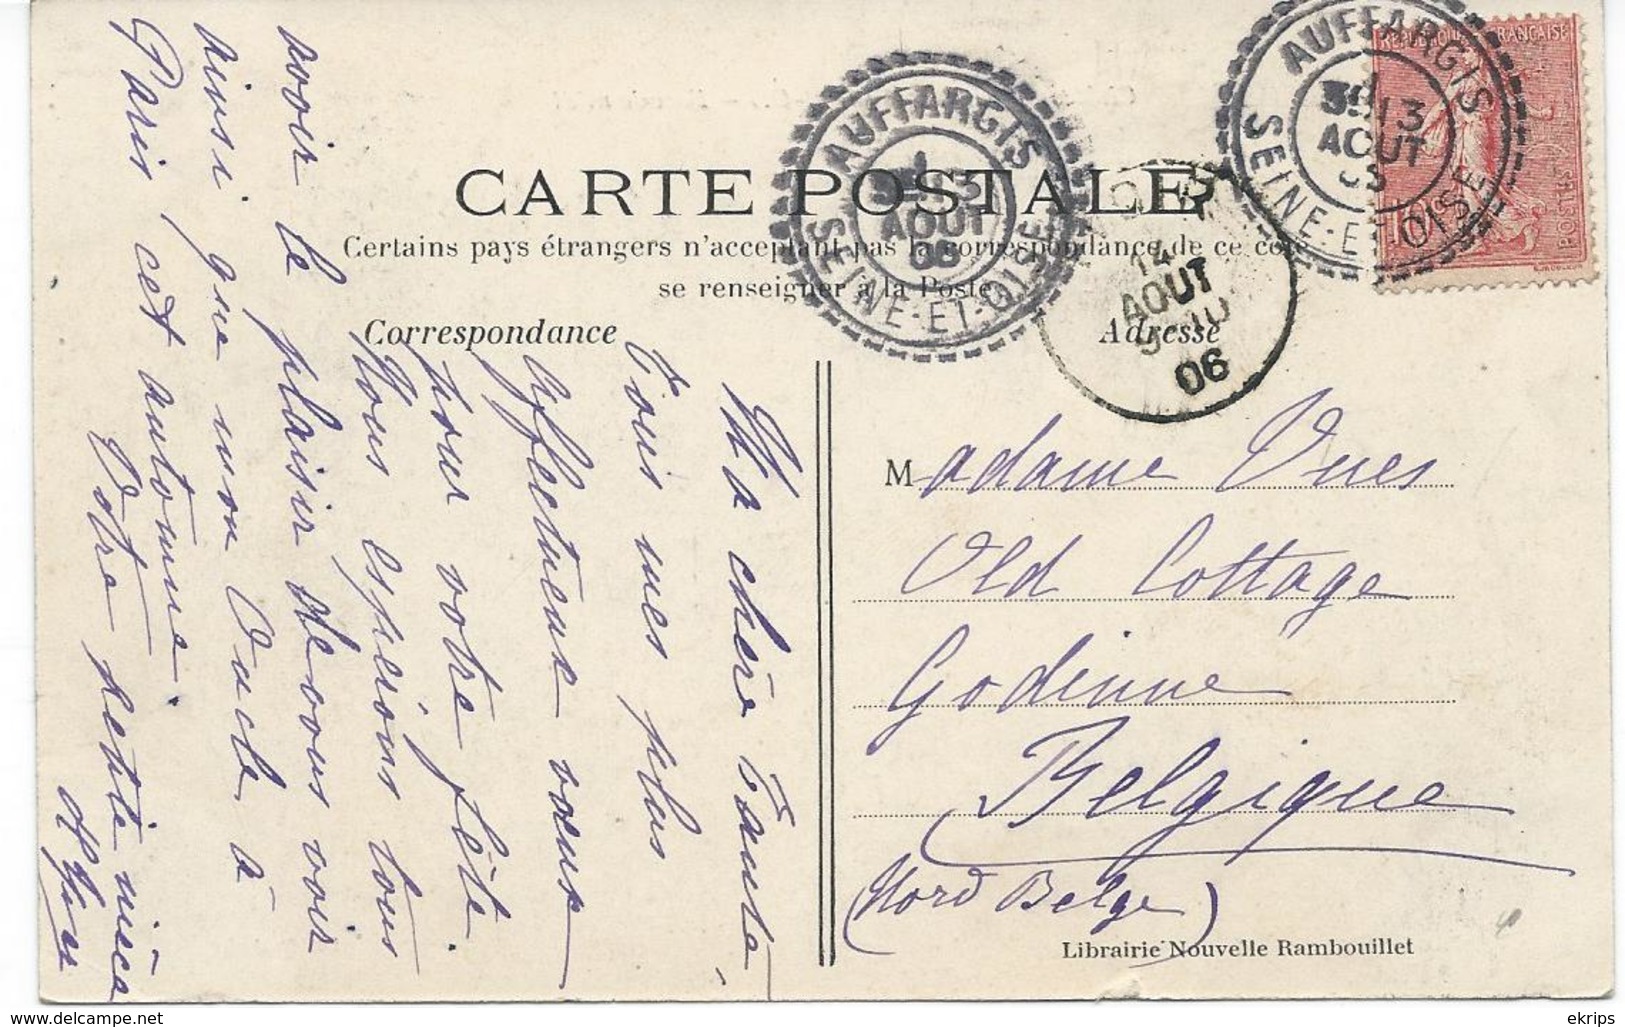 CARTE POSTALE
Certains pays étrangers n'acceptant pas la correspondance de ce côté
se renseigner à la Poste
Correspondance
Adresse
AUFFARGIS
13
AOUT
06
SEINE-ET-OISE
AUFFARGIS
13
AOUT
SEINE-ET-OISE
14
AOUT
06
REPUBLIQUE FRANCAISE
POSTES
Ma chère Tante
Tous mes plus
affectueux vœux
pour votre fête.
Nous espérons tous
avoir le plaisir de vous voir
ainsi que mon Oncle à
Paris cet automne.
Votre petite nièce
Madame
Old Cottage
Godinne
Belgique
(Nord Belge)
Librairie Nouvelle Rambouillet
ekrips
delcampe.net